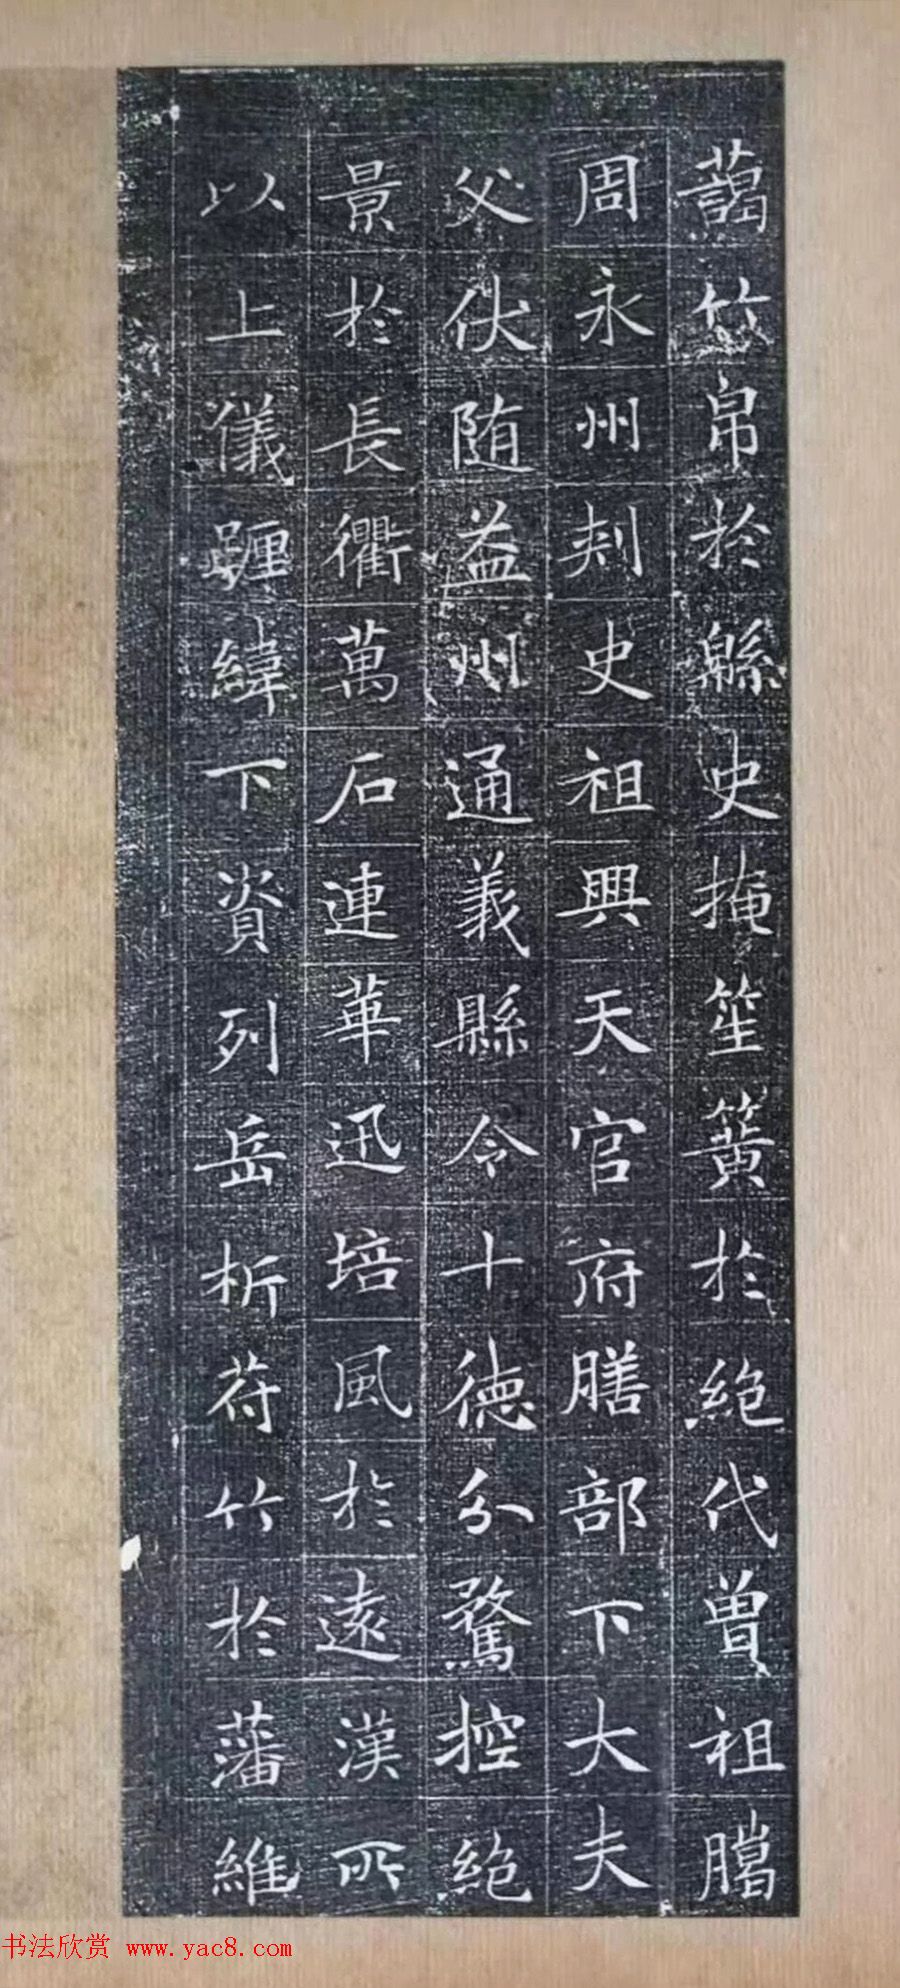 蔼竹帛於緜史掩笙簧於絶代曾祖騰
周永州刾史祖興天官府膳部下大夫
父伏随益州通義縣令十德分騖控絶
景於長衢萬石連華迅培風於遠漢所
以上儀躔緯下資列岳析苻竹於藩維
书法欣赏 www.yac8.com